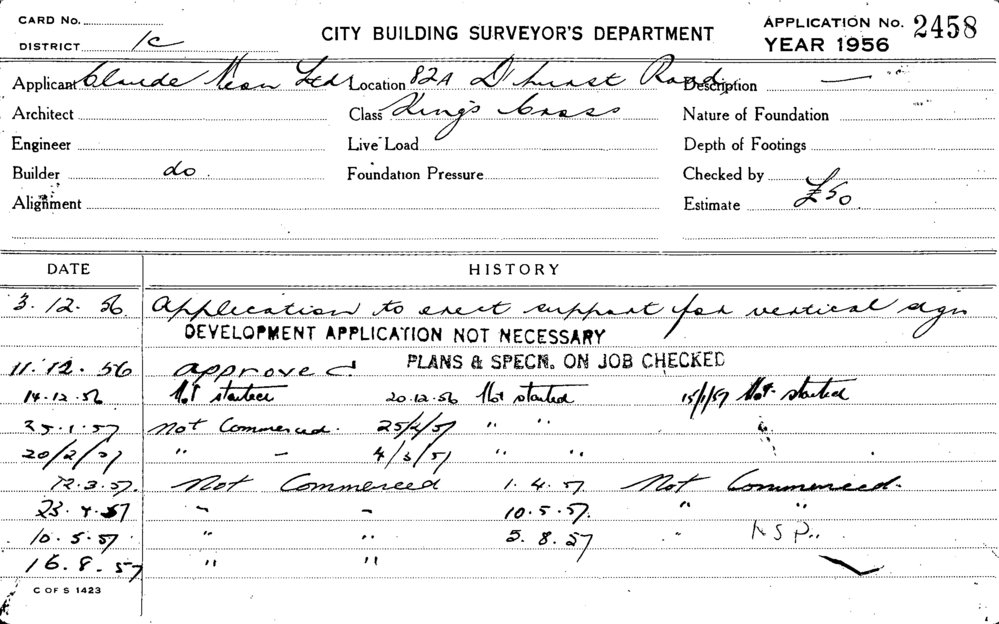 CARD No.
DISTRICT 1c
CITY BUILDING SURVEYOR'S DEPARTMENT
APPLICATION No. 2458
YEAR 1956
Applicant Claude Neon Ltd Location 82A D'hurst Road Description —
Architect Class Kings Cross Nature of Foundation
Engineer Live Load Depth of Footings
Builder do. Foundation Pressure Checked by
Alignment Estimate £50
DATE HISTORY
3.12.56 Application to erect support for vertical sign
DEVELOPMENT APPLICATION NOT NECESSARY
11.12.56 approved. PLANS & SPECN. ON JOB CHECKED
14.12.56 Not started 20.12.56 Not started 15/1/57 Not started
25.1.57 Not Commenced. 25/2/57 " "
20/2/57 " - 4/3/57 " "
12.3.57. Not Commenced 1.4.57 Not Commenced.
23.4.57 - - 10.5.57. " "
10.5.57 " " 5.8.57 " NSP..
16.8.57 " "
C OF S 1423